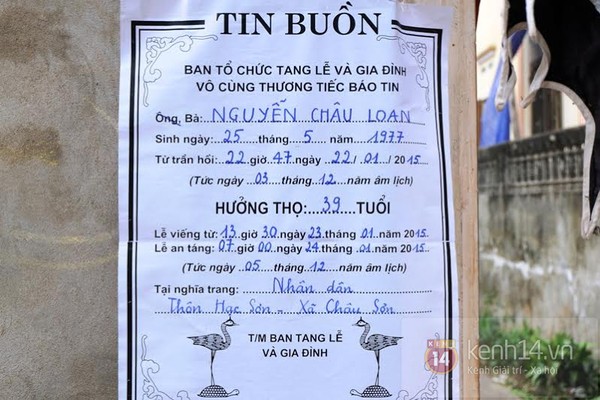 TIN BUỒN
BAN TỔ CHỨC TANG LỄ VÀ GIA ĐÌNH
VÔ CÙNG THƯƠNG TIẾC BÁO TIN
Ông, Bà: NGUYỄN CHÂU LOAN
Sinh ngày: 25 tháng 5 năm 1977
Từ trần hồi: 22 giờ 47 ngày 22 / 01 / 2015
(Tức ngày 03 tháng 12 năm âm lịch)
HƯỞNG THỌ: 39 TUỔI
Lễ viếng từ: 13 giờ 30 ngày 23 tháng 01 năm 2015
Lễ an táng: 07 giờ 00 ngày 24 tháng 01 năm 2015
(Tức ngày 05 tháng 12 năm âm lịch)
Tại nghĩa trang: Nhân dân
Thôn Hạc Sơn - Xã Châu Sơn
T/M BAN TANG LỄ
VÀ GIA ĐÌNH
KÊNH 14 kenh14.vn
Kênh Giải trí - Xã hội